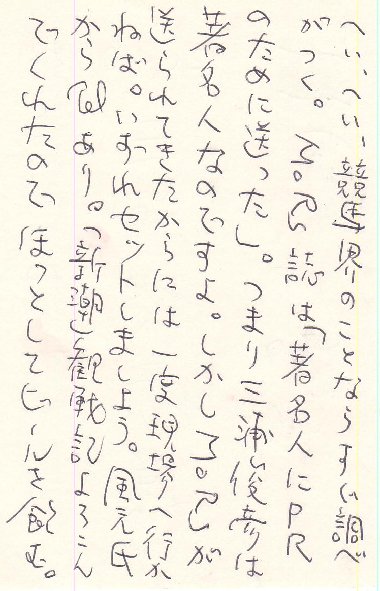 へい、へい、競馬界のことならすぐ調べ
がつく。誌は「著名人にPR
のために送った」。つまり三浦俊彦は
著名人なのですよ。しかしが
送られてきたからには一度現場へ行か
ねば。いずれセットしましょう。風元氏
からあり。「新潮」観戦記よろこん
でくれたのでほっとしてビールを飲む。